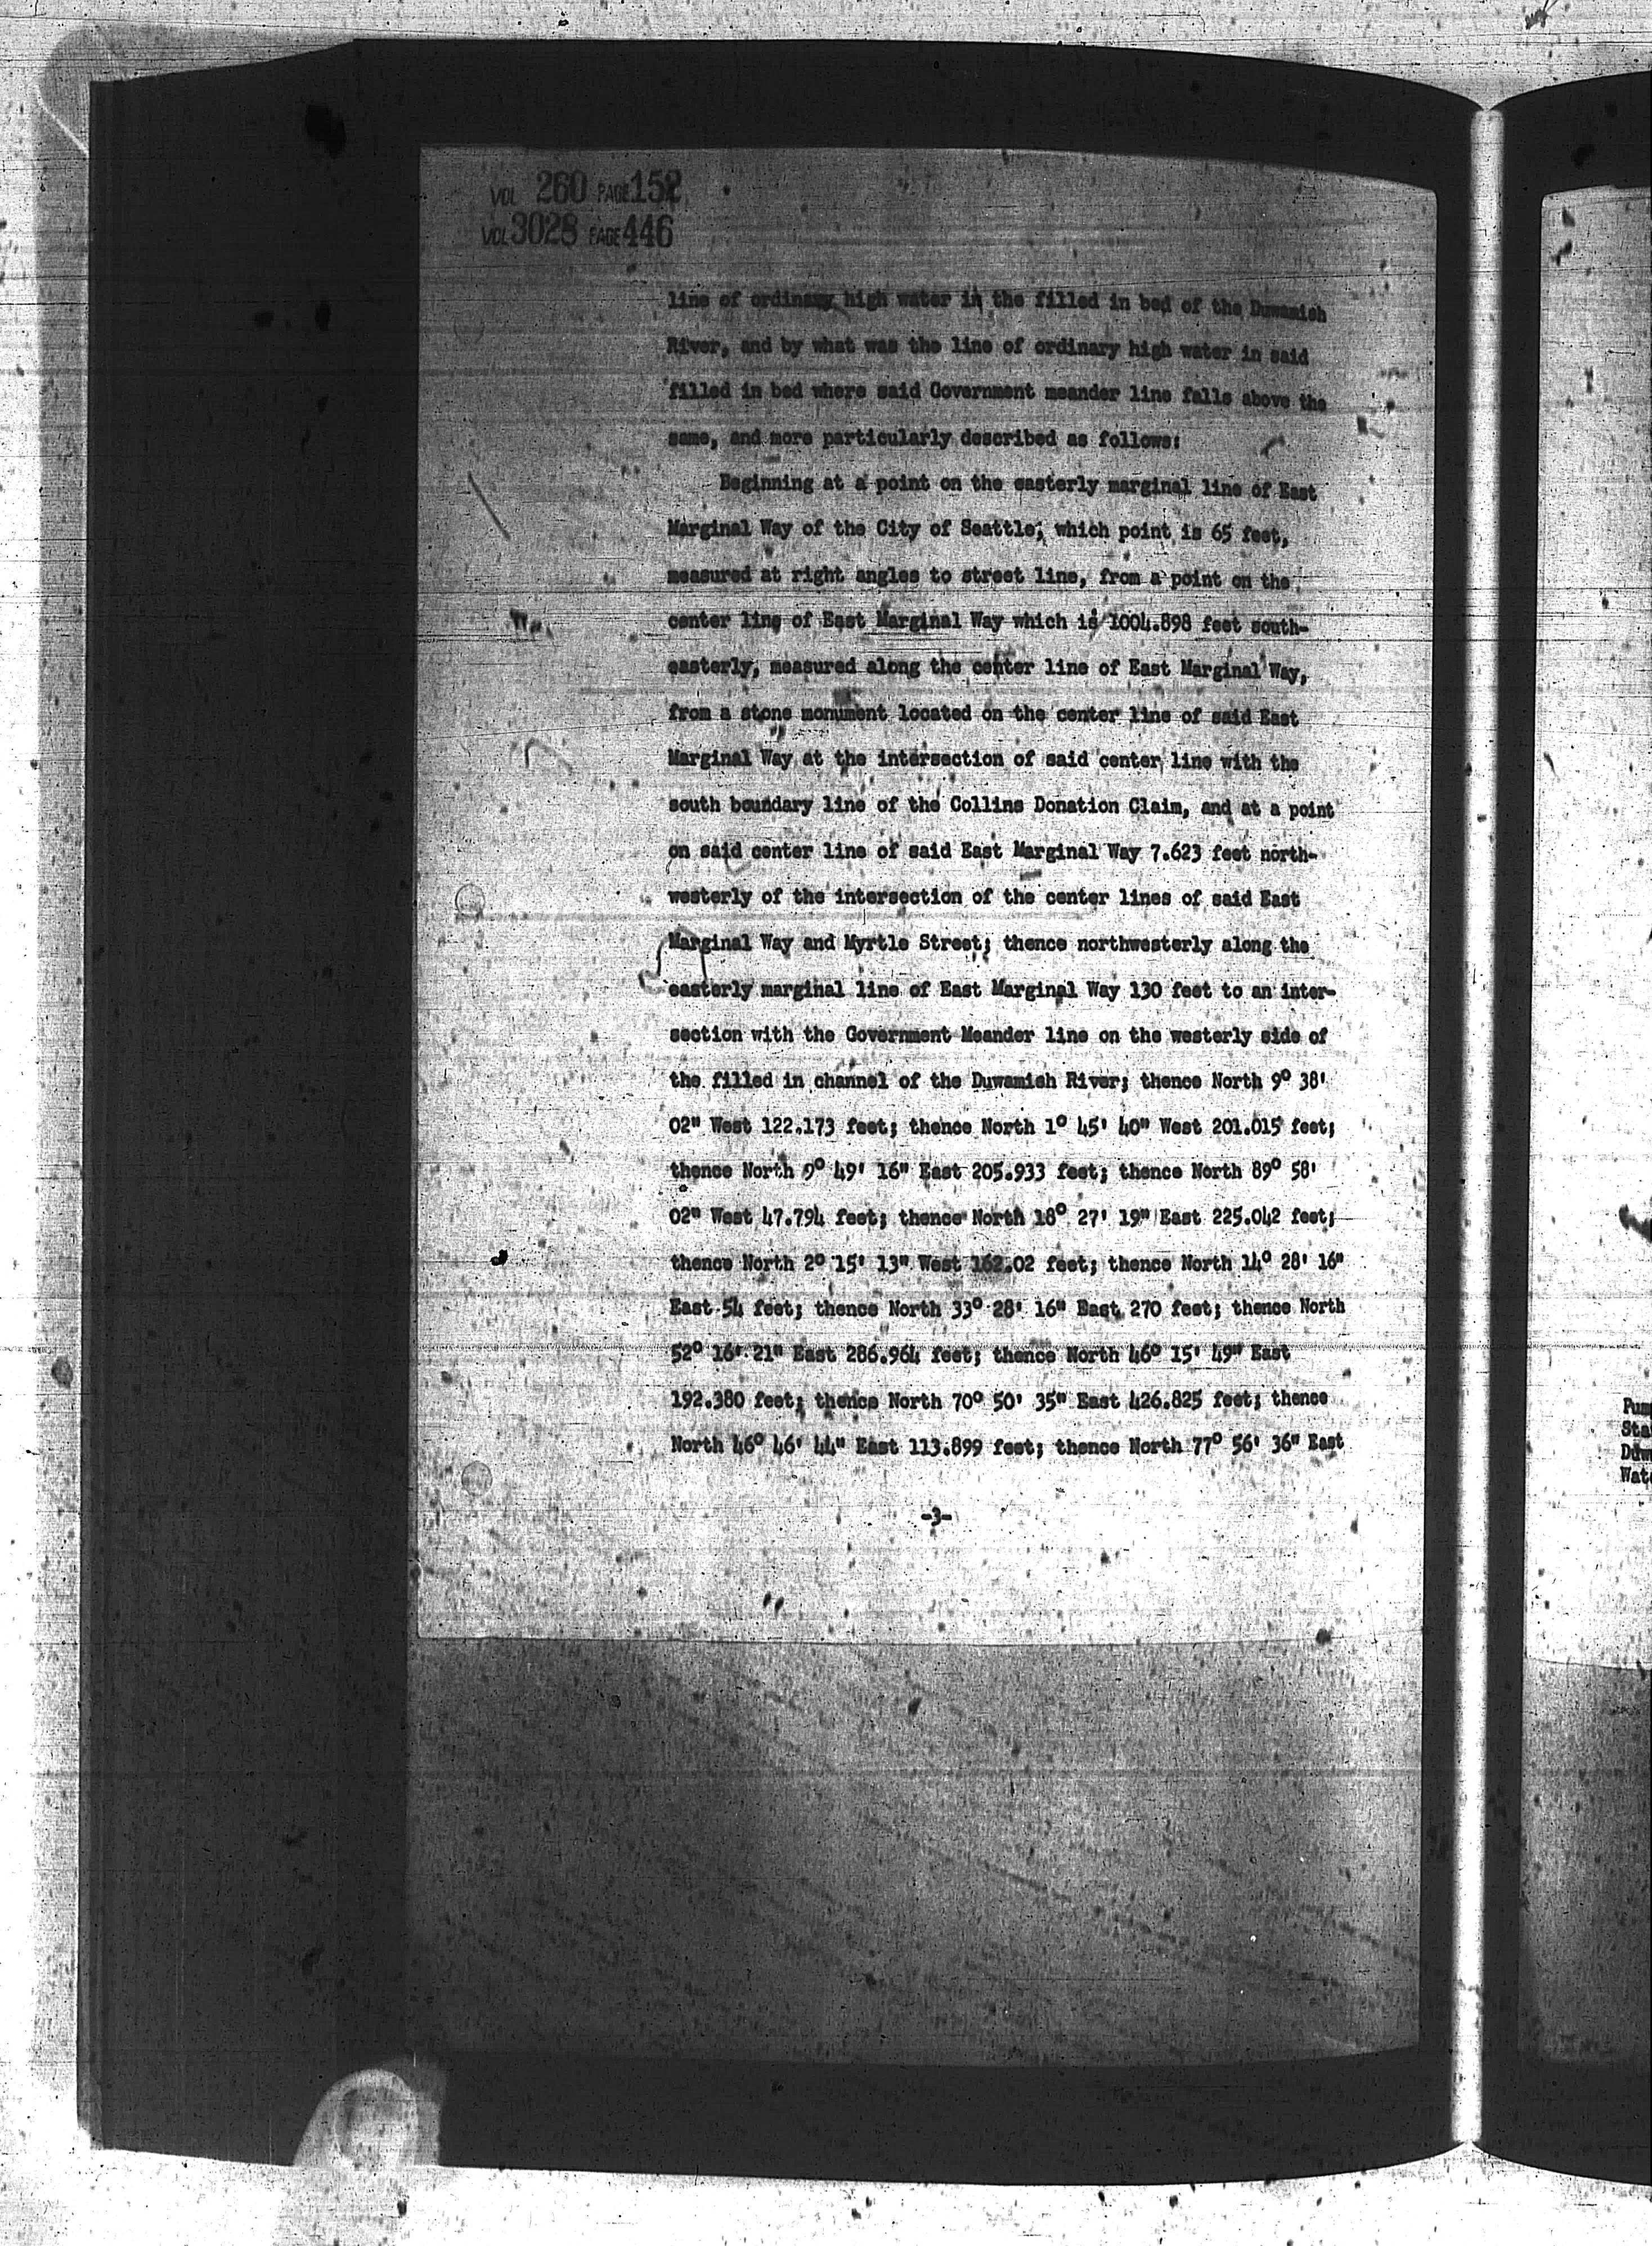 VOL 260 PAGE 152
VOL 3028 PAGE 446
line of ordinary high water in the filled in bed of the Duwamish
River, and by what was the line of ordinary high water in said
filled in bed where said Government meander line falls above the
same, and more particularly described as follows:
Beginning at a point on the easterly marginal line of East
Marginal Way of the City of Seattle, which point is 65 feet,
measured at right angles to street line, from a point on the
center line of East Marginal Way which is 1004.898 feet south-
easterly, measured along the center line of East Marginal Way,
from a stone monument located on the center line of said East
Marginal Way at the intersection of said center line with the
south boundary line of the Collins Donation Claim, and at a point
on said center line of said East Marginal Way 7.623 feet north-
westerly of the intersection of the center lines of said East
Marginal Way and Myrtle Street; thence northwesterly along the
easterly marginal line of East Marginal Way 130 feet to an inter-
section with the Government Meander line on the westerly side of
the filled in channel of the Duwamish River; thence North 9° 38'
02" West 122.173 feet; thence North 1° 45' 40" West 201.015 feet;
thence North 9° 49' 16" East 205.933 feet; thence North 89° 58'
02" West 47.794 feet; thence North 18° 27' 19" East 225.042 feet;
thence North 2° 15' 13" West 162.02 feet; thence North 14° 28' 16"
East 54 feet; thence North 33° 28' 16" East 270 feet; thence North
52° 16' 21" East 286.964 feet; thence North 46° 15' 49" East
192.380 feet; thence North 70° 50' 35" East 426.825 feet; thence
North 46° 46' 44" East 113.899 feet; thence North 77° 56' 36" East
-3-
Pum
Sta
Duw
Wat